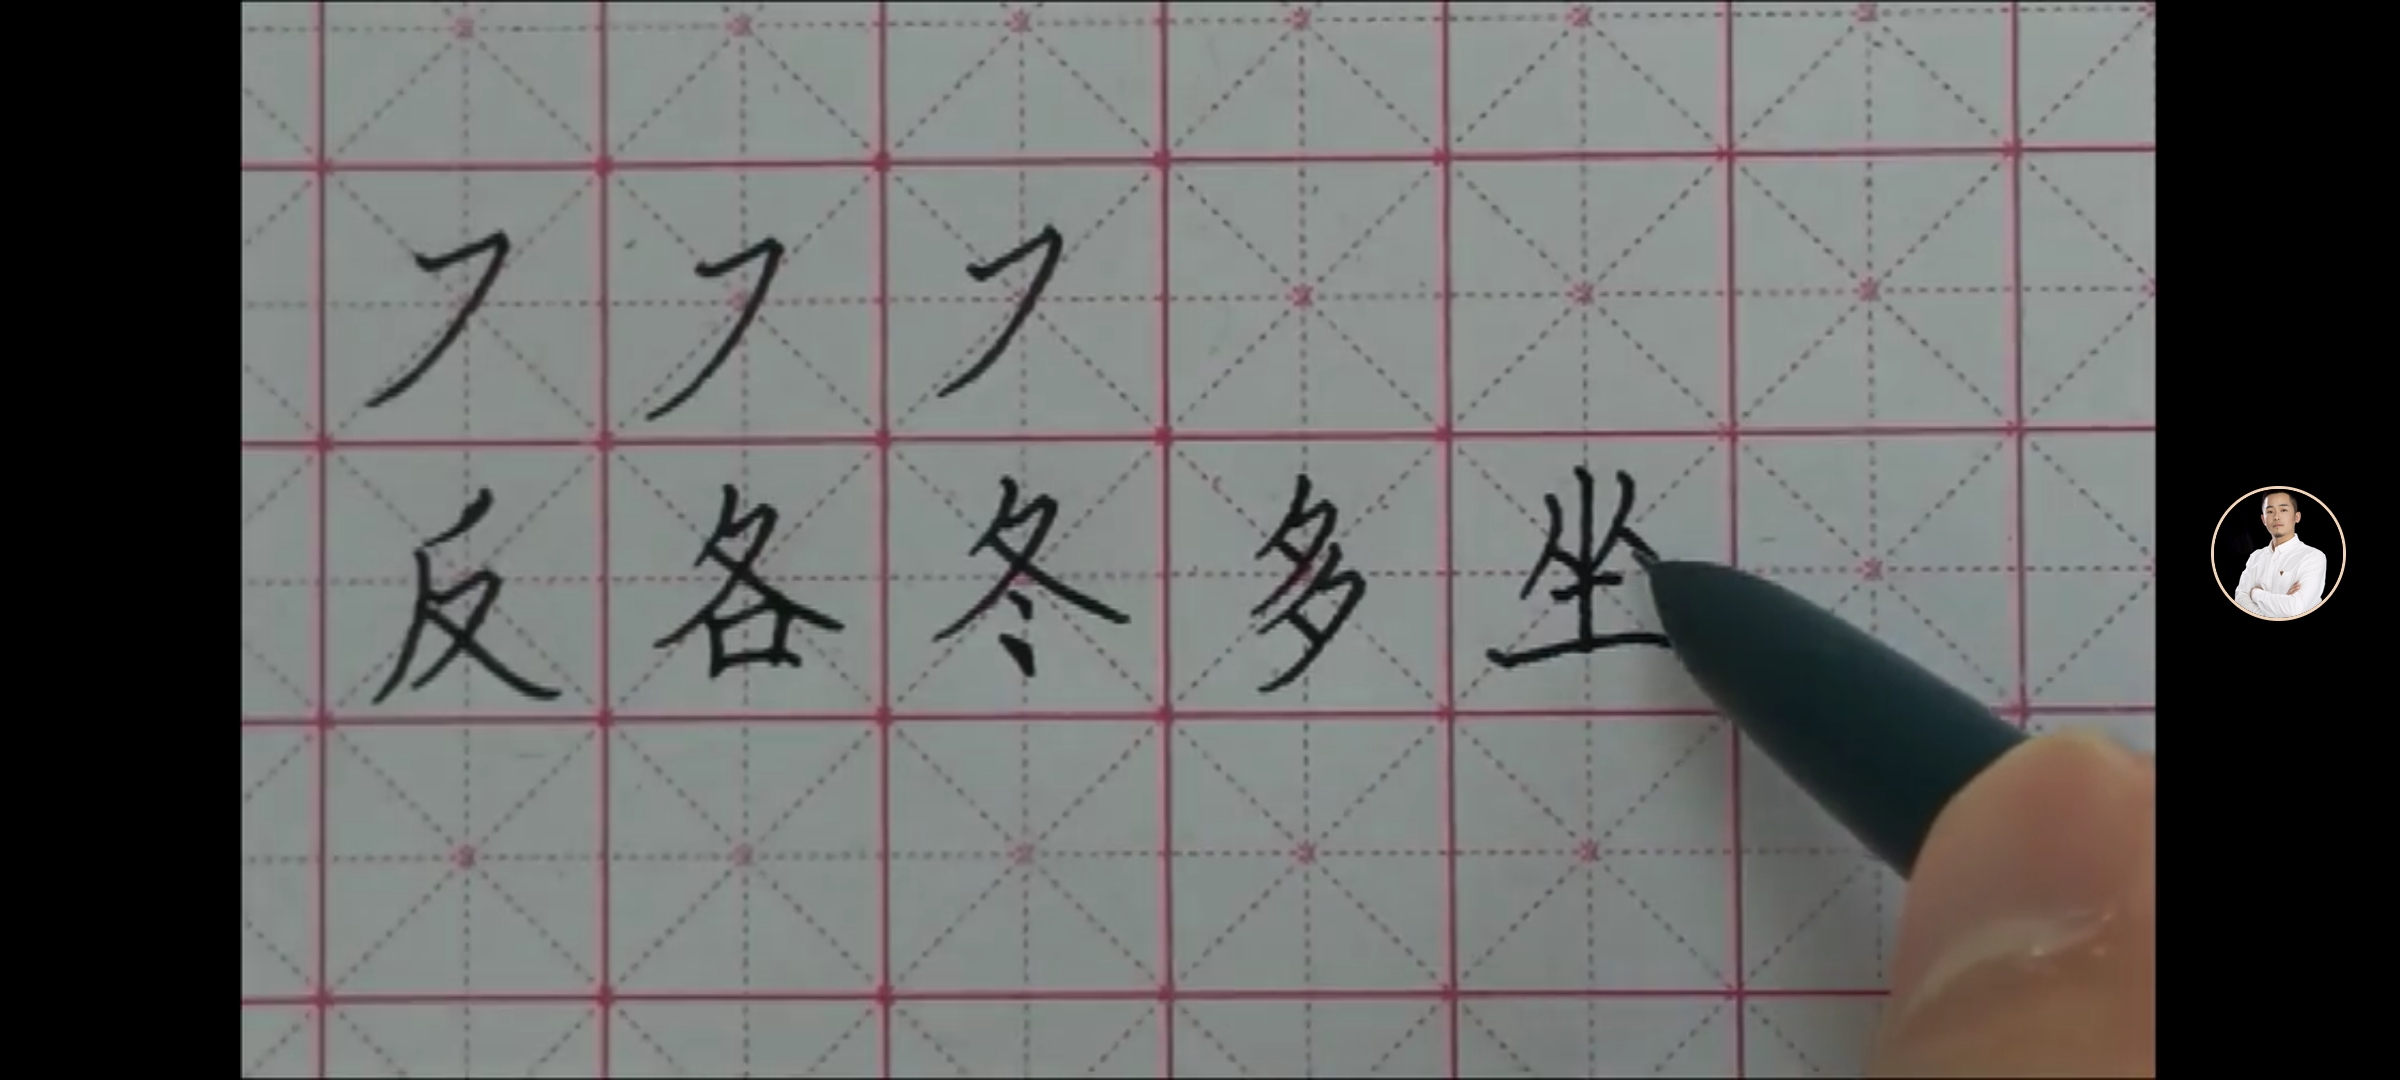 ㇇ ㇇ ㇇
反 各 冬 多 坐